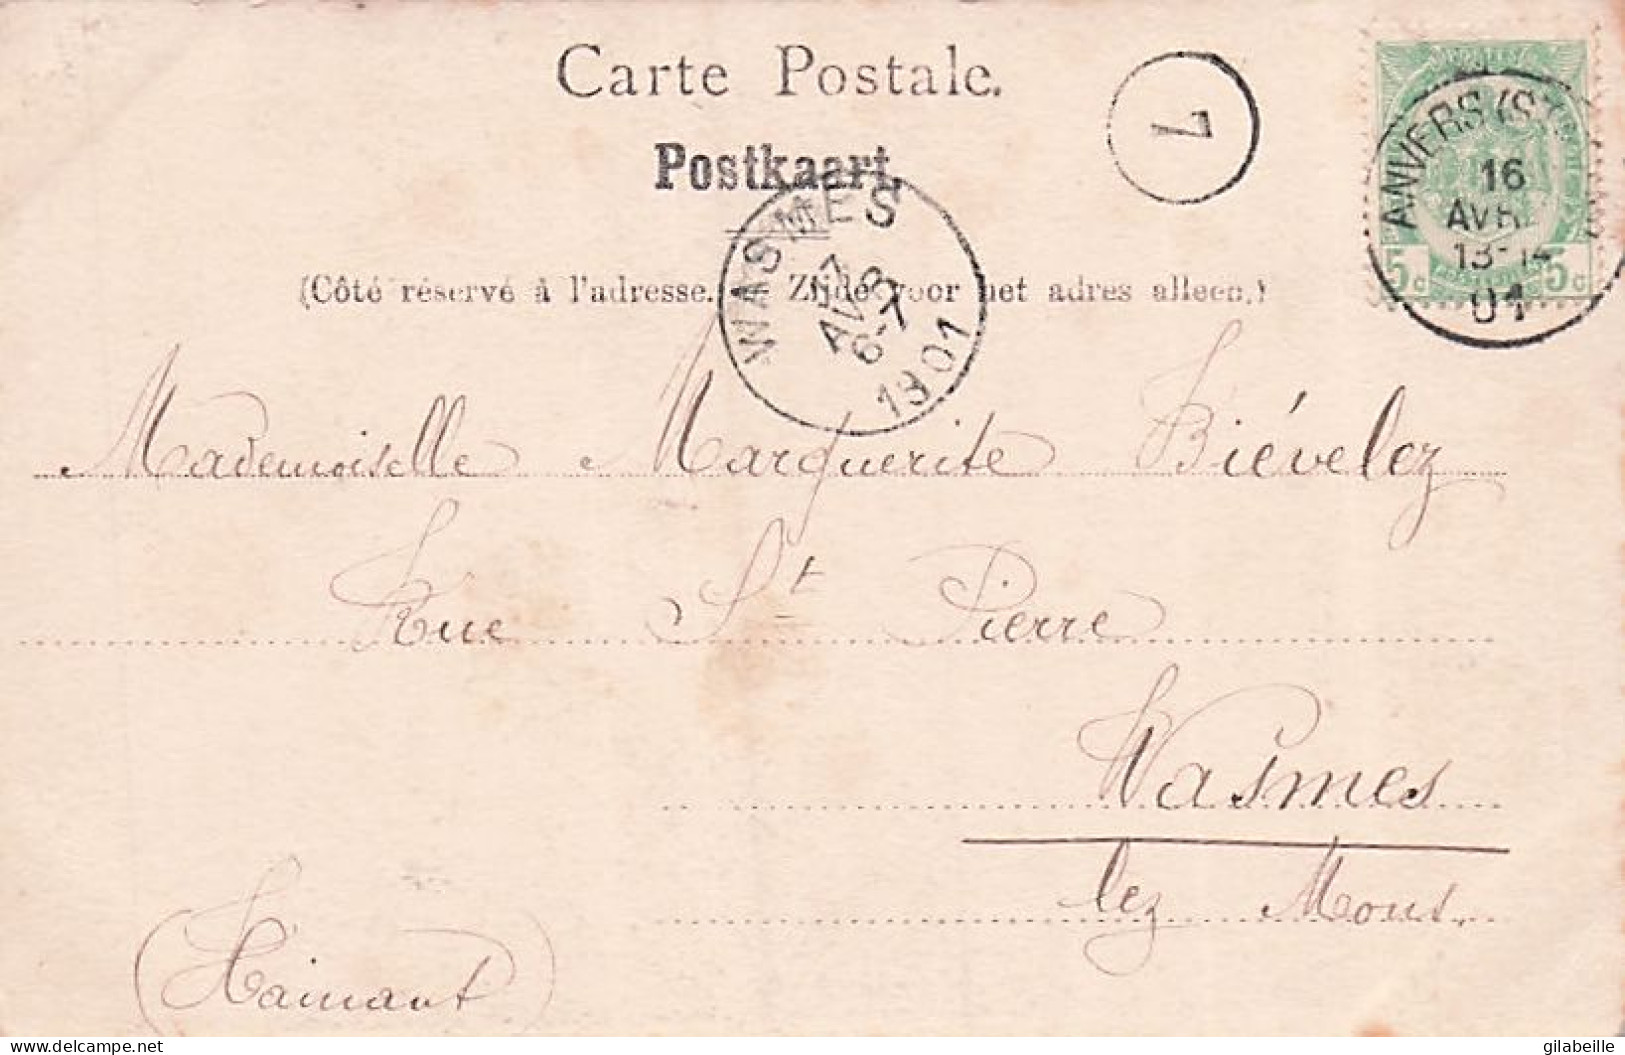 Carte Postale.
Postkaart.
7
ANVERS (ST
16
AVR
13-14
01
5c 5c
WASMES
17
AVR
6-7
1901
(Côté réservé à l'adresse. — Zijde voor het adres alleen.)
Mademoiselle Marguerite Biévelez
Rue St Pierre
Wasmes
lez Mons.
(Hainaut)
delcampe.net
gilabeille